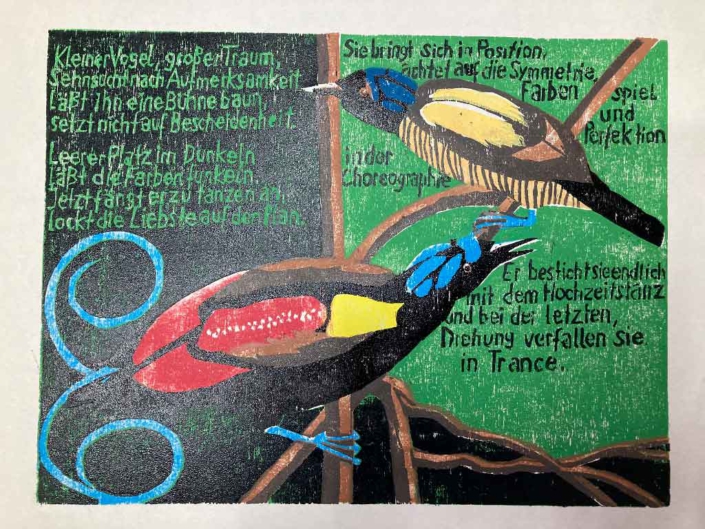 Kleiner Vogel, großer Traum,
Sehnsucht nach Aufmerksamkeit
Läßt ihn eine Bühne baun,
setzt nicht auf Bescheidenheit.
Leerer Platz im Dunkeln
Läßt die Farben funkeln
Jetzt fängt er zu tanzen an,
lockt die Liebste auf den Plan.
Sie bringt sich in Position,
achtet auf die Symmetrie,
Farben spiel
und
Perfektion
in der
Choreographie
Er besticht sie endlich
mit dem Hochzeitstanz
und bei der letzten,
Drehung verfallen sie
in Trance.